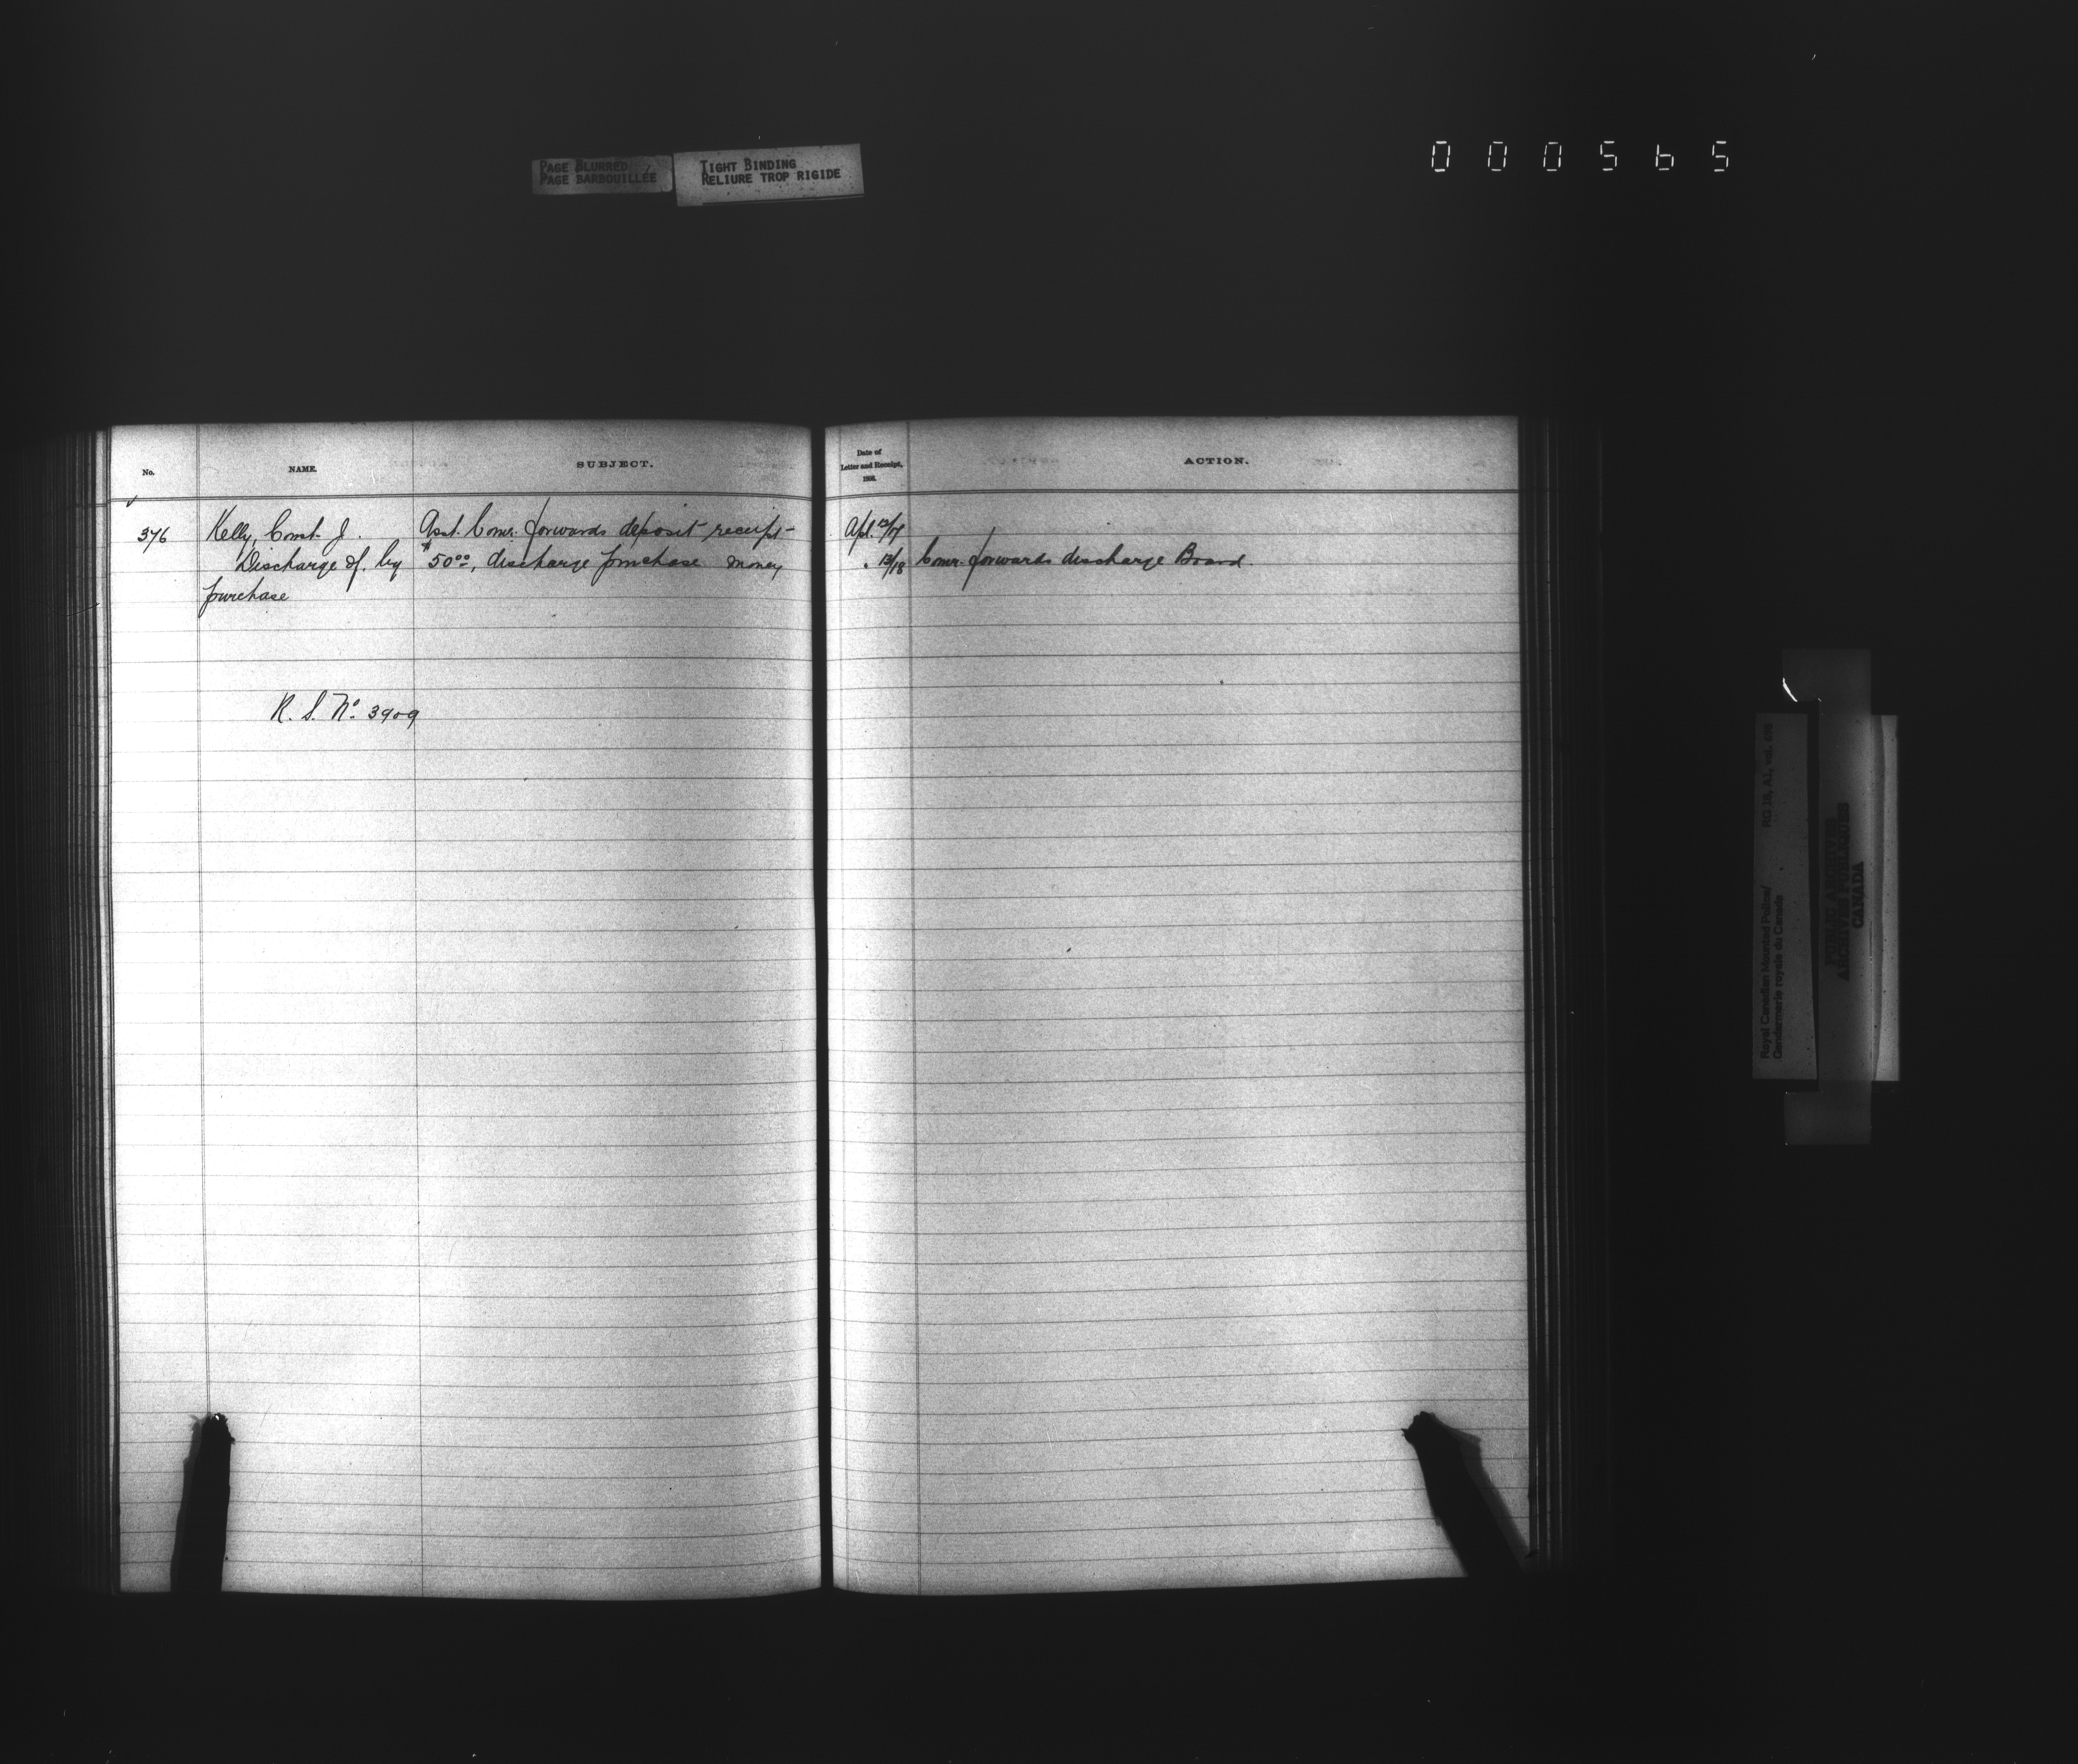 PAGE BLURRED
PAGE BARBOUILLÉE
TIGHT BINDING
RELIURE TROP RIGIDE
000565
No.
NAME.
SUBJECT.
376
Kelly, Const. J.
Discharge of. by
purchase
Asst. Comr. forwards deposit receipt
$50.00, discharge purchase money
R. S. No. 3909
Date of
Letter and Receipt,
ACTION.
Apl. 12/17
" 13/18 Comr. forwards discharge Board.
Royal Canadian Mounted Police/
Gendarmerie royale du Canada
RG 18, A1, vol.
PUBLIC ARCHIVES
ARCHIVES PUBLIQUES
CANADA